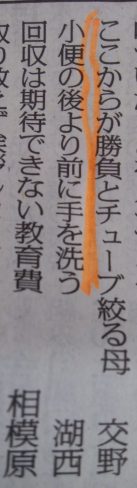 ここからが勝負とチューブ絞る母　交野
小便の後より前に手を洗う　湖西
回収は期待できない教育費　相模原